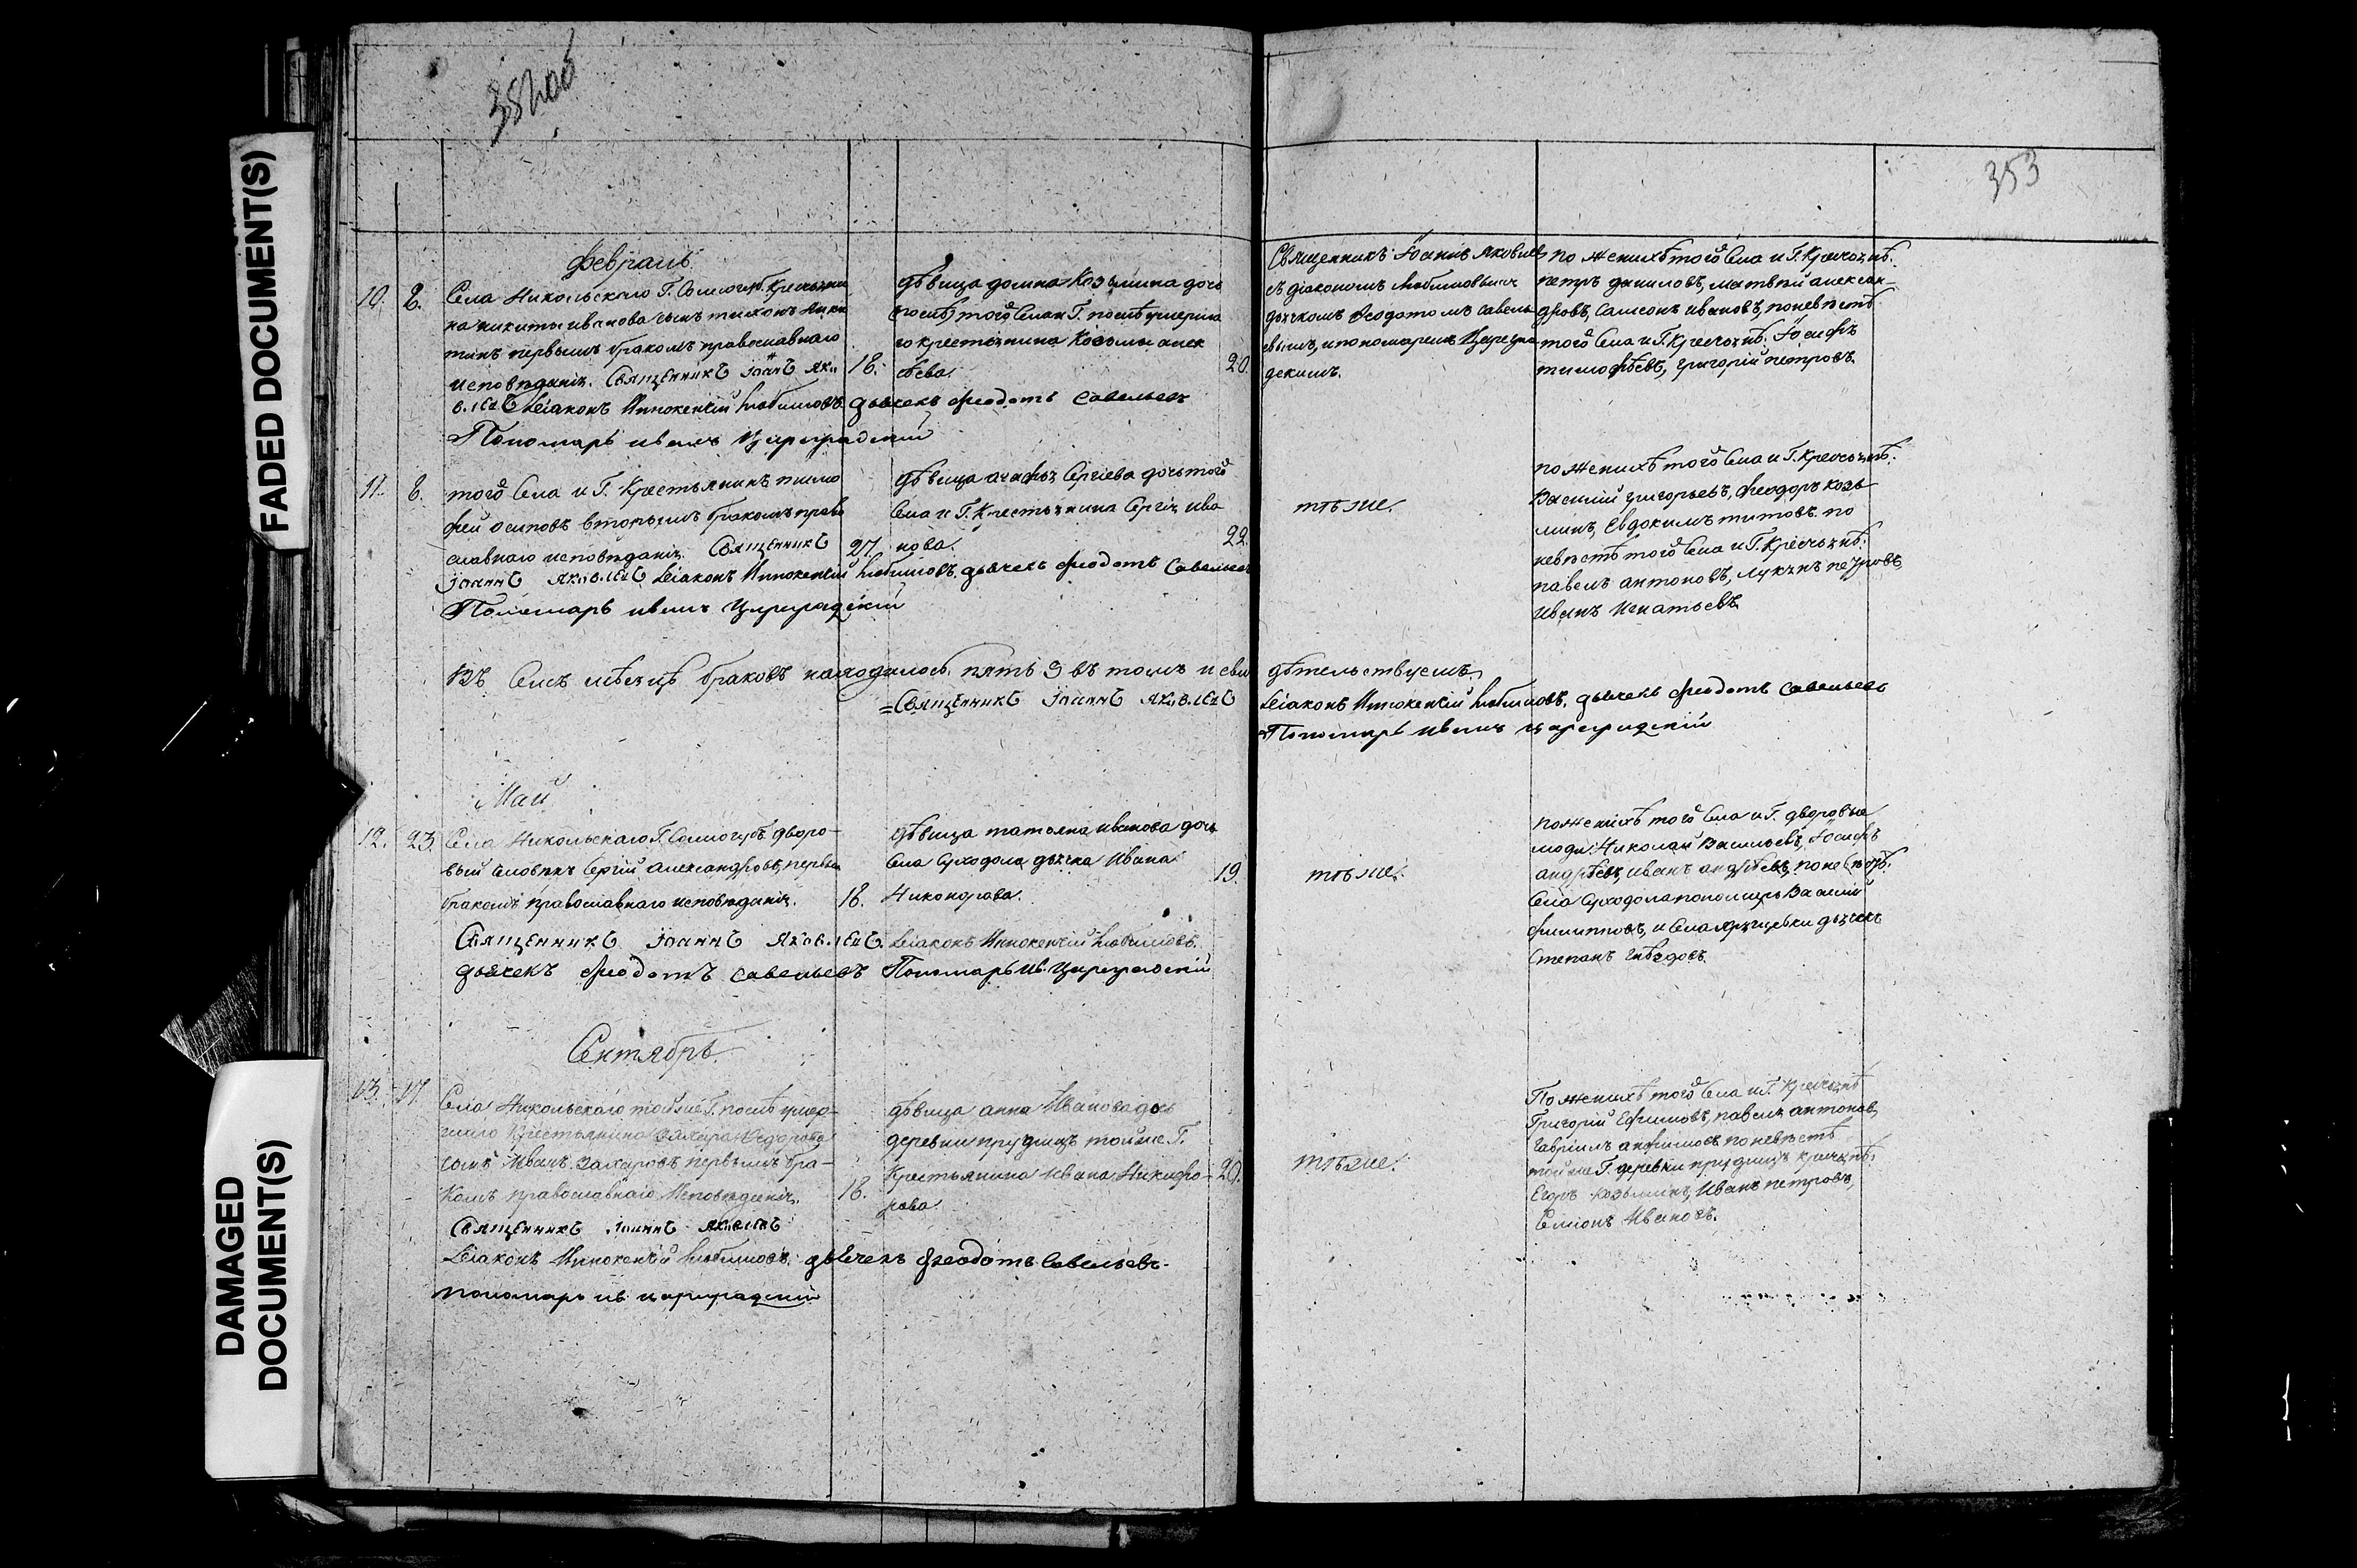 FADED DOCUMENT(S)
DAMAGED
DOCUMENT(S)
353
Февраль
10. 2. Села Никольскаго Г. Самогуб. Крестьяни
на никиты иванова сынъ тихонъ Ники
тинъ первымъ бракомъ православнаго
исповѣданія. Священникъ Іоаннъ Яко 18.
в.левъ Діаконъ Иннокентій Любимовъ дьячекъ Феодотъ Савельевъ
Пономарь иванъ Цареградскій
дѣвица домна Козьмина дочь
того Села и Г. послѣ умерша
го крестьянина Козьмы алек
сѣева. 20.
Священникъ Іоаннъ Яковлевъ
съ діакономъ Любимовымъ
дьячкомъ Феодотомъ Савель
евымъ, и пономаремъ Цареград
скимъ.
по женихѣ того Села и Г. Крестьянѣ:
петръ даниловъ, матвѣй алексан-
дровъ, Самсонъ ивановъ, по невѣстѣ
того Села и Г. Крестьянѣ: Іосифъ
тимофѣевъ, григорій петровъ.
11. 8. того Села и Г. Крестьянинъ тимо
фей осиповъ вторымъ бракомъ право
славнаго исповѣданія. Священникъ 27.
Іоаннъ Яковлевъ Діаконъ Иннокентій Любимовъ. дьячекъ Феодотъ Савельевъ
Пономарь иванъ Цареградскій
дѣвица агафья Сергіева дочь того
Села и Г. Крестьянина Сергія ива
нова. 22.
тѣже.
по женихѣ того Села и Г. Крестьянѣ:
Василій григорьевъ, феодоръ козь
минъ, Евдокимъ титовъ. по
невѣстѣ того Села и Г. Крестьянѣ:
павелъ антоновъ, лукьянъ петровъ,
иванъ игнатьевъ.
Въ Семъ мѣсяцѣ браковъ находилось пять 5 въ томъ и сви дѣтельствуемъ.
=Священникъ Іоаннъ Яковлевъ Діаконъ Иннокентій Любимовъ. дьячекъ Феодотъ Савельевъ
Пономарь иванъ цареградскій
Май
12. 23. Села Никольскаго Г. Самогуб. дворо-
вый человѣкъ Сергій Александровъ, первымъ
бракомъ православнаго исповѣданія. 18.
Священникъ Іоаннъ Яковлевъ. Діаконъ Иннокентій Любимовъ.
дьячекъ Феодотъ Савельевъ Пономарь Ив. Цареградскій
дѣвица татьяна иванова дочь
Села Суходола дьячка Ивана
Никонорова. 19.
тѣже.
по женихѣ того Села и Г. дворовые
люди Николай Васильевъ, Іосифъ
андрѣевъ, иванъ андрѣевъ, по невѣстѣ:
Села Суходола пономарь Василій
филипповъ, и Села дьячекъ
Степанъ Гнѣздовъ.
Сентябрь.
13. 17. Села Никольскаго тойже Г. послѣ умер-
шаго Крестьянина Захара Федорова
сынъ Иванъ Захаровъ первымъ бра-
комъ православнаго Исповѣданія. 18.
Священникъ Іоаннъ Яковлевъ
Діаконъ Иннокентій Любимовъ. дьячекъ Феодотъ Савельевъ.
пономарь ив цареградскій
дѣвица анна Иванова дочь
деревни прудищъ тойже Г.
Крестьянина Ивана Никифо-
рова 20.
тѣже.
По женихѣ того Села и Г. Крестьянѣ
Григорій Ефимовъ, павелъ антоновъ,
Гавріилъ анфимовъ по невѣстѣ
тойже Г. деревни прудищъ крестьянѣ:
Егоръ козьминъ, Иванъ петровъ,
Семіонъ Ивановъ.